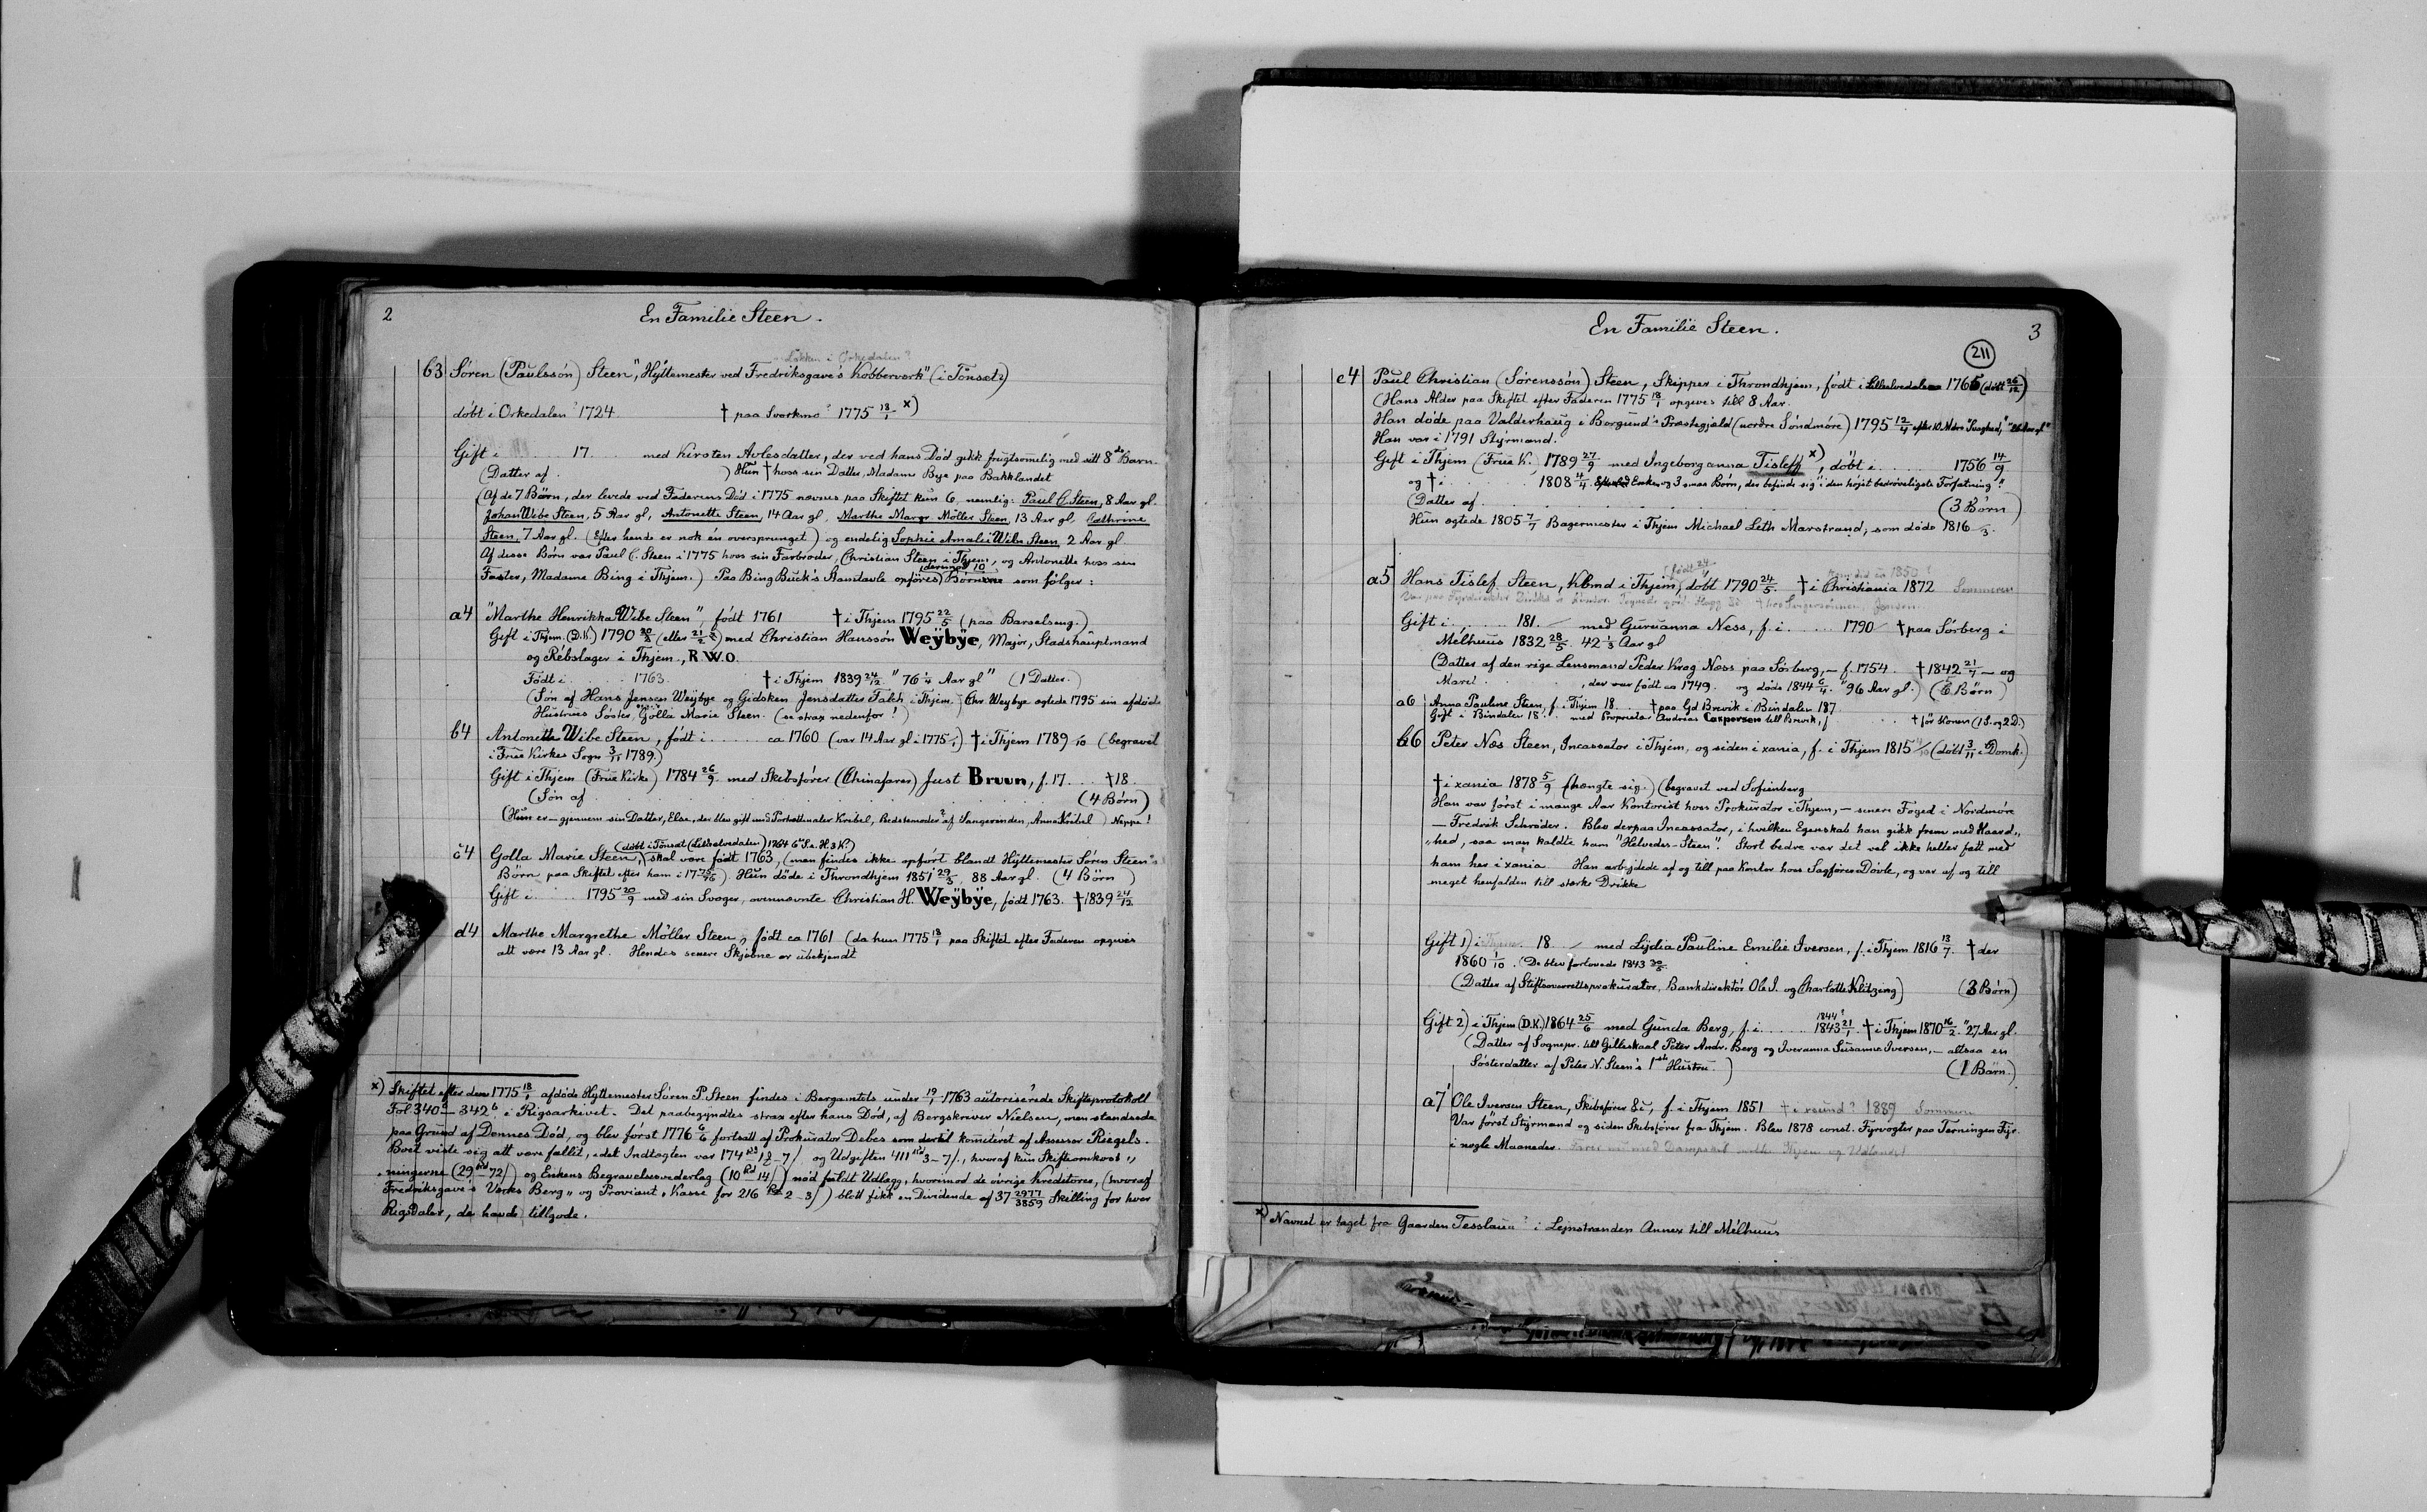 2
En Familie Steen.
Løkken i Orkedalen?
b3 Søren (Paulssøn) Steen, "Hyttemester ved Fredriksgave's Kobberværk" (i Tönset?)
döbt i Orkedalen? 1724. † paa Svorkmo? 1775 18/1 x)
Gift i 17 med Kirsten Avlesdatter, der ved hans Död gikk frugtsommelig med sitt 8de Barn.
(Datter af ) Hun † hoss sin Datter, Madame Bye paa Bakklandet
(Af de 7 Börn, der levede ved Faderens Död i 1775 nævnes paa Skiftet kun 6, nemlig: Paul C. Steen, 8 Aar gl.
Johan Wibe Steen, 5 Aar gl, Antonette Steen, 14 Aar gl, Marthe Margr. Möller Steen, 13 Aar gl, Cathrine
Steen, 7 Aar gl. (Efter hende er nok én oversprunget) og endelig Sophie Amalie Wibe Steen, 2 Aar gl.
Af disse Börn var Paul C. Steen i 1775 hoss sin Farbroder, Christian Steen i Thjem, og Antonette hoss sin
Faster, Madame Bing i Thjem.) Paa Bing Buck's Stamtavle opföres (derimod 10) Börnene som fölger:
a4 "Marthe Henrikka Wibe Steen", födt 1761 † i Thjem 1795 22/5 (paa Barselseng.)
Gift i Thjem. (D.K.) 1790 20/3 (eller 21/2 ?) med Christian Hanssön Weÿbÿe, Major, Stadshauptmand
og Rebslager i Thjem., R.W.O.
Födt i 1763. † i Thjem 1839 24/12 "76 1/4 Aar gl" (1 Datter.)
(Sön af Hans Jensen Weÿbye og Gidsken Jensdatter Falch i Thjem. Chr. Weybye ægtede 1795 sin afdöde
Hustrus Söster, Golla Marie Steen. (se strax nedenfor!)
b4 Antonette Wibe Steen, födt i ca 1760 (var 14 Aar gl i 1775 /1) † i Thjem 1789 /10 (begravet
i Frue Kirkes Sogn 3/11 1789.)
Gift i Thjem (Frue Kirke) 1784 26/9 med Skibsförer (Chinafarer) Just Bruun, f. 17 †18
(Sön af (4 Börn)
(Hun er – gjennem sin Datter, Else, der blev gift med Portrætmaler Kribel, Bedstemoder? af Sangerinden, Anna Kribel) Neppe!
c4 Golla Marie Steen, (döbt i Tönset (Lilleelvedalen) 1764 skal være födt 1763, (men findes ikke opfört blandt Hyttemester Sören Steen's
Börn paa Skiftet efter ham i 1775). Hun döde i Throndhjem 1851 29/3, 88 Aar gl. (4 Börn)
Gift i 1795 20/9 med sin Svoger, ovennævnte Christian H. Weÿbÿe, födt 1763. †1839 24/12
d4 Marthe Margrethe Möller Steen, födt ca 1761 (da hun 1775 18/1 paa Skiftet efter Faderen opgives
att være 13 Aar gl. Hendes senere Skjæbne er ubekjendt
x) Skiftet efter den 1775 18/1 afdöde Hyttemester Sören P. Steen findes i Bergamtets under 19/1 1763 autoriserede Skifteprotokoll
Fol 340a – 342b i Rigsarkivet. Det paabegyndtes strax efter hans Död, af Bergskriver Nielsen, men standsede
paa Grund af Dennes Död, og blev först 1776 6/6 fortsatt af Prokurator Debes som dertil komiteret af Assessor Riegels.
Boet viste sig att være fallit, idet Indtægten var 174 Rd 1 2 – 7/ og Udgiften 411 Rd 3 – 7/, hvoraf kun Skifteomkost„
ningerne (29 Rd 72/) og Enkens Begravelsesvederlag (10 Rd 14/) nöd fuldt Udlægg, hvorimod de övrige Kreditores, (hvoraf
Fredriksgave's Værks Berg„ og Proviant„ Kasse for 216 Rd 2 – 3/) blott fikk en Dividende af 37 2977/3859 Skilling for hver
RigsDaler, de havde tillgode.
En Familie Steen.
3
211
e4 Paul Christian (Sörenssön) Steen, Skipper i Throndhjem, födt i Lilleelvedalen 1765 (döbt 26/12)
(Hans Alder paa Skiftet efter Faderen 1775 18/1 opgives till 8 Aar.
Han döde paa Valderhaug i Borgund's Præstegjæld (nordre Söndmöre) 1795 12/4 efter 10 Mdrs Svaghed,
Han var i 1791 Styrmand.
Gift i Thjem (Frue K.) 1789 27/9 med Ingeborganna Tisleff x), döbt i 1756 14/9
og † i 1808 4/4. Enke og 3 smaa Börn, der befinde sig "i den höjst bedröveligste Forfatning".
(Datter af (3 Börn)
Hun ægtede 1805 7/7 Bagermester i Thjem Michael Leth Marstrand, som döde 1816 /3.
a5 Hans Tislef Steen, Kbmd i Thjem, döbt 1790 24/5. † i Christiania 1872
Gift i 181 med Guruanna Ness, f. i 1790 † paa Sörberg i
Melhuus 1832 28/5. 42 1/3 Aar gl
(Datter af den rige Lensmand Peder Krog Næss paa Sörberg, – f. 1754 † 1842 21/7 – og
Maret , der var födt ca 1749. og döde 1844 6/4. "96 Aar gl.) (Börn)
a6 Anna Pauline Steen, f. i Thjem 18 † paa Gd Brevik i Bindalen 187
Gift i Bindalen 18 med Proprietær Andreas Caspersen till Brevik, f † för Konen (1 S. og 2 D.)
b6 Peter Næs Steen, Incassator i Thjem, og siden i xania, f. i Thjem 1815 /10 (döbt 3/11 i Domk.)
† i xania 1878 5/9 (hængte sig.) (begravet ved Sofienberg
Han var först i mange Aar Kontorist hoss Prokurator i Thjem, – senere Foged i Nordmöre
– Fredrik Schröder. Blev derpaa Incassator, i hvilken Egenskab han gikk frem med Haard„
„hed, saa man kaldte ham "Helvedes-Steen". Stort bedre var det vel ikke heller fatt med
ham her i xania. Han arbejdede af og till paa Kontor hoss Sagförer Dövle, og var af og till
meget henfalden till stærke Drikke
Gift 1) i Thjem 18 med Lydia Pauline Emilie Iversen, f. i Thjem 1816 13/7. † der
1860 1/10. (De blev forlovede 1843
(Datter af Stiftsoverretsprokurator, Bankdirektör Ole I. og Charlotte Klitzing) (3 Börn)
Gift 2) i Thjem (D.K.) 1864 25/6 med Gunda Berg, f. i 1844? 1843 21/1. † i Thjem 1870 16/2. "27 Aar gl.
(Datter af Sognepr. till Gilleskaal Peter Andr. Berg og Iveranna Susanna Iversen, – altsaa en
Sösterdatter af Peter N. Steen's 1ste Hustru.) (1 Barn.)
a7 Ole Iversen Steen, Skibsförer &c, f. i Thjem 1851 † i xsund? 1889 Sommeren
Var först Styrmand og siden Skibsförer fra Thjem. Blev 1878 const. Fyrvogter paa Terningen Fyr.
i nogle Maaneder.
x) Navnet er taget fra Gaarden Tesslaua? i Lejnstranden Annex till Mélhuus